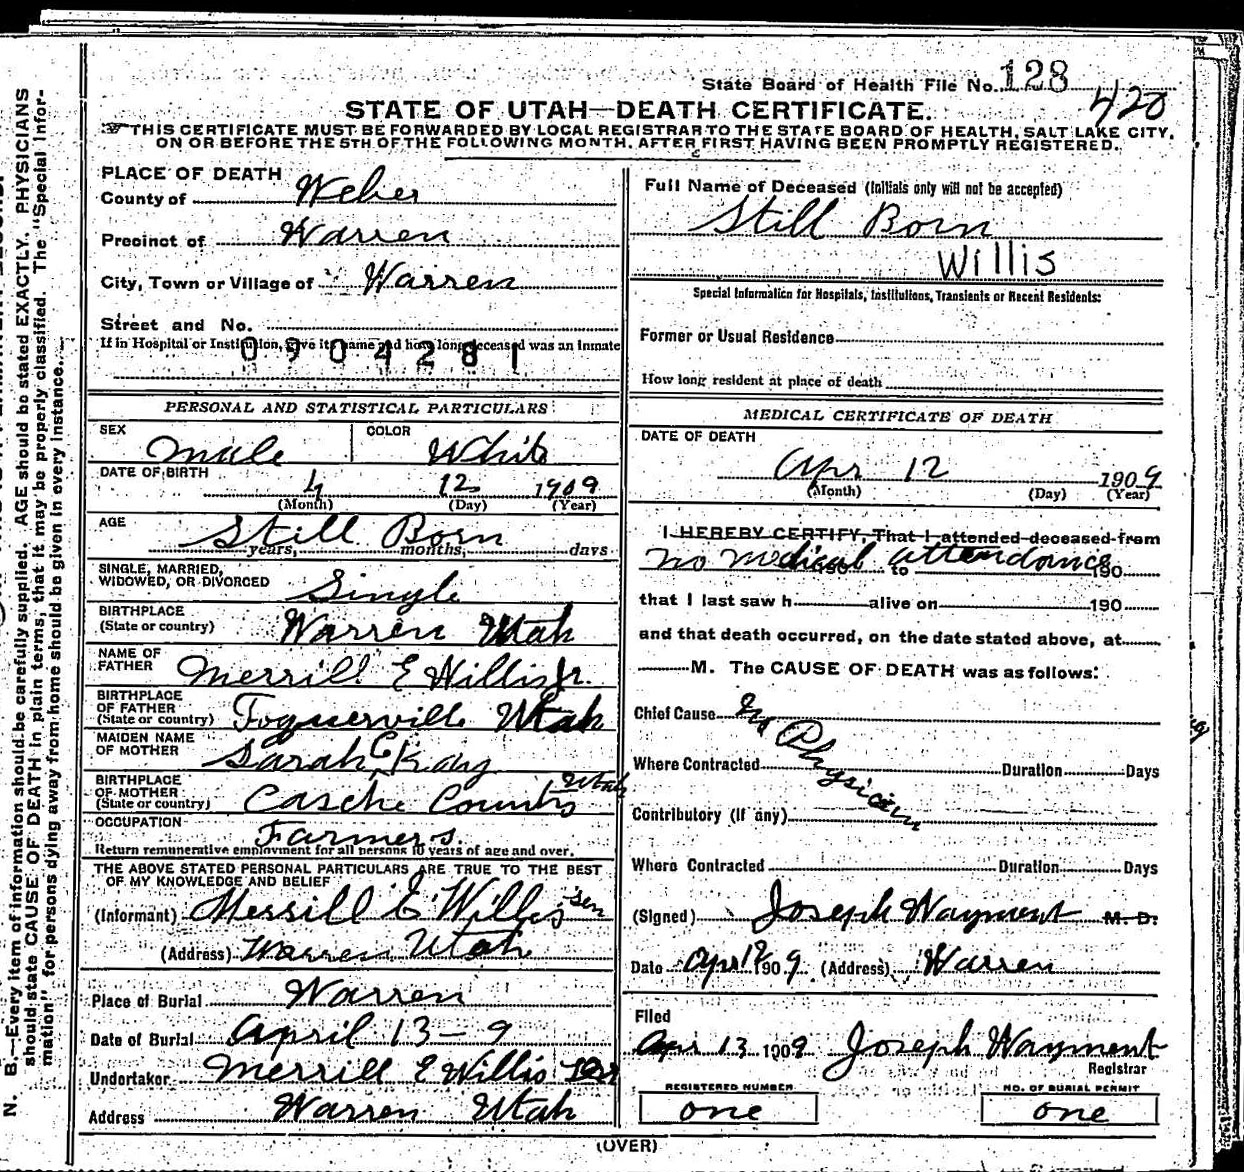 State Board of Health File No. 128
420
STATE OF UTAH—DEATH CERTIFICATE.
THIS CERTIFICATE MUST BE FORWARDED BY LOCAL REGISTRAR TO THE STATE BOARD OF HEALTH, SALT LAKE CITY,
ON OR BEFORE THE 5TH OF THE FOLLOWING MONTH, AFTER FIRST HAVING BEEN PROMPTLY REGISTERED.
PLACE OF DEATH
County of Weber
Precinct of Warren
City, Town or Village of Warren
Street and No.
If in Hospital or Institution, give its name and how long deceased was an inmate
0904281
PERSONAL AND STATISTICAL PARTICULARS
SEX Male COLOR White
DATE OF BIRTH 4 12 1909
(Month) (Day) (Year)
AGE Still Born
years, months, days
SINGLE, MARRIED,
WIDOWED, OR DIVORCED Single
BIRTHPLACE
(State or country) Warren Utah
NAME OF
FATHER Merrill E Willis Jr.
BIRTHPLACE
OF FATHER
(State or country) Toquerville Utah
MAIDEN NAME
OF MOTHER Sarah E Kay
BIRTHPLACE
OF MOTHER
(State or country) Casche County Utah
OCCUPATION Farmers.
Return remunerative employment for all persons 10 years of age and over.
THE ABOVE STATED PERSONAL PARTICULARS ARE TRUE TO THE BEST
OF MY KNOWLEDGE AND BELIEF
(Informant) Merrill E Willis Sen
(Address) Warren Utah
Place of Burial Warren
Date of Burial April 13 - 9
Undertaker Merrill E Willis
Address Warren Utah
Full Name of Deceased (Initials only will not be accepted)
Still Born
Willis
Special Information for Hospitals, Institutions, Transients or Recent Residents:
Former or Usual Residence
How long resident at place of death
MEDICAL CERTIFICATE OF DEATH
DATE OF DEATH
Apr 12 1909
(Month) (Day) (Year)
I HEREBY CERTIFY, That I attended deceased from
no medical attendance
190 to 190
that I last saw h alive on 190
and that death occurred, on the date stated above, at
M. The CAUSE OF DEATH was as follows:
Chief Cause No Physician
Where Contracted Duration Days
Contributory (If any)
Where Contracted Duration Days
(Signed) Joseph Wayment M. D.
Date Apr 12 1909 (Address) Warren
Filed
Apr 13 1909 Joseph Wayment
Registrar
REGISTERED NUMBER
one
NO. OF BURIAL PERMIT
one
(OVER)
N. B.—Every item of information should be carefully supplied. AGE should be stated EXACTLY. PHYSICIANS
should state CAUSE OF DEATH in plain terms, that it may be properly classified. The "Special Infor-
mation" for persons dying away from home should be given in every instance.